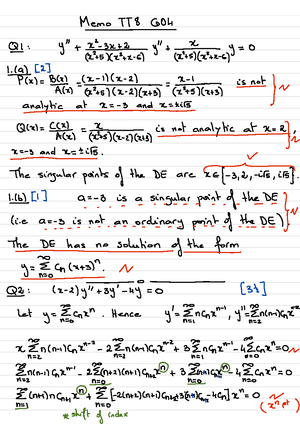 Memo TT8 G04
Q1: y'' + (x²-3x+2)/((x²+5)(x²+x-6)) y' + x/((x²+5)(x²+x-6)) y = 0
1.(a) [2]
P(x) = B(x)/A(x) = (x-1)(x-2)/((x²+5)(x-2)(x+3)) = (x-1)/((x²+5)(x+3)) is not
analytic at x=-3 and x=±i√5.
Q(x) = C(x)/A(x) = x/((x²+5)(x-2)(x+3)) is not analytic at x=2,
x=-3 and x=±i√5.
The singular points of the DE are x∈{-3,2,-i√5,i√5}.
1.(b) [1] a=-3 is a singular point of the DE
(i.e a=-3 is not an ordinary point of the DE)
The DE has no solution of the form
y = Σ_{n=0}^∞ Cn(x+3)^n
Q2: (x-2)y'' + 3y' - 4y = 0 [3½]
Let y = Σ_{n=0}^∞ Cn x^n. Hence y' = Σ_{n=1}^∞ nCn x^{n-1}, y'' = Σ_{n=2}^∞ n(n-1)Cn x^{n-2}
x Σ_{n=2}^∞ n(n-1)Cn x^{n-2} - 2 Σ_{n=2}^∞ n(n-1)Cn x^{n-2} + 3 Σ_{n=1}^∞ nCn x^{n-1} - 4 Σ_{n=0}^∞ Cn x^n = 0
Σ_{n=2}^∞ n(n-1)Cn x^{n-1} - 2 Σ_{n=0}^∞ (n+2)(n+1)C_{n+2} x^n + 3 Σ_{n=0}^∞ (n+1)C_{n+1} x^n - 4 Σ_{n=0}^∞ Cn x^n = 0
Σ_{n=1}^∞ (n+1)n C_{n+1} x^n + Σ_{n=0}^∞ [-2(n+2)(n+1)C_{n+2} + 3(n+1)C_{n+1} - 4Cn] x^n = 0
* shift of index